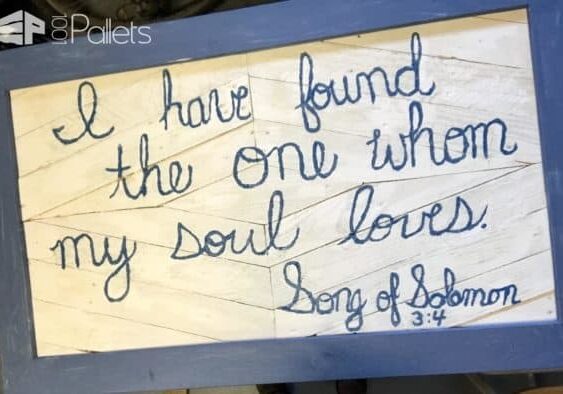 1001 Pallets
I have found
the one whom
my soul loves.
Song of Solomon
3:4